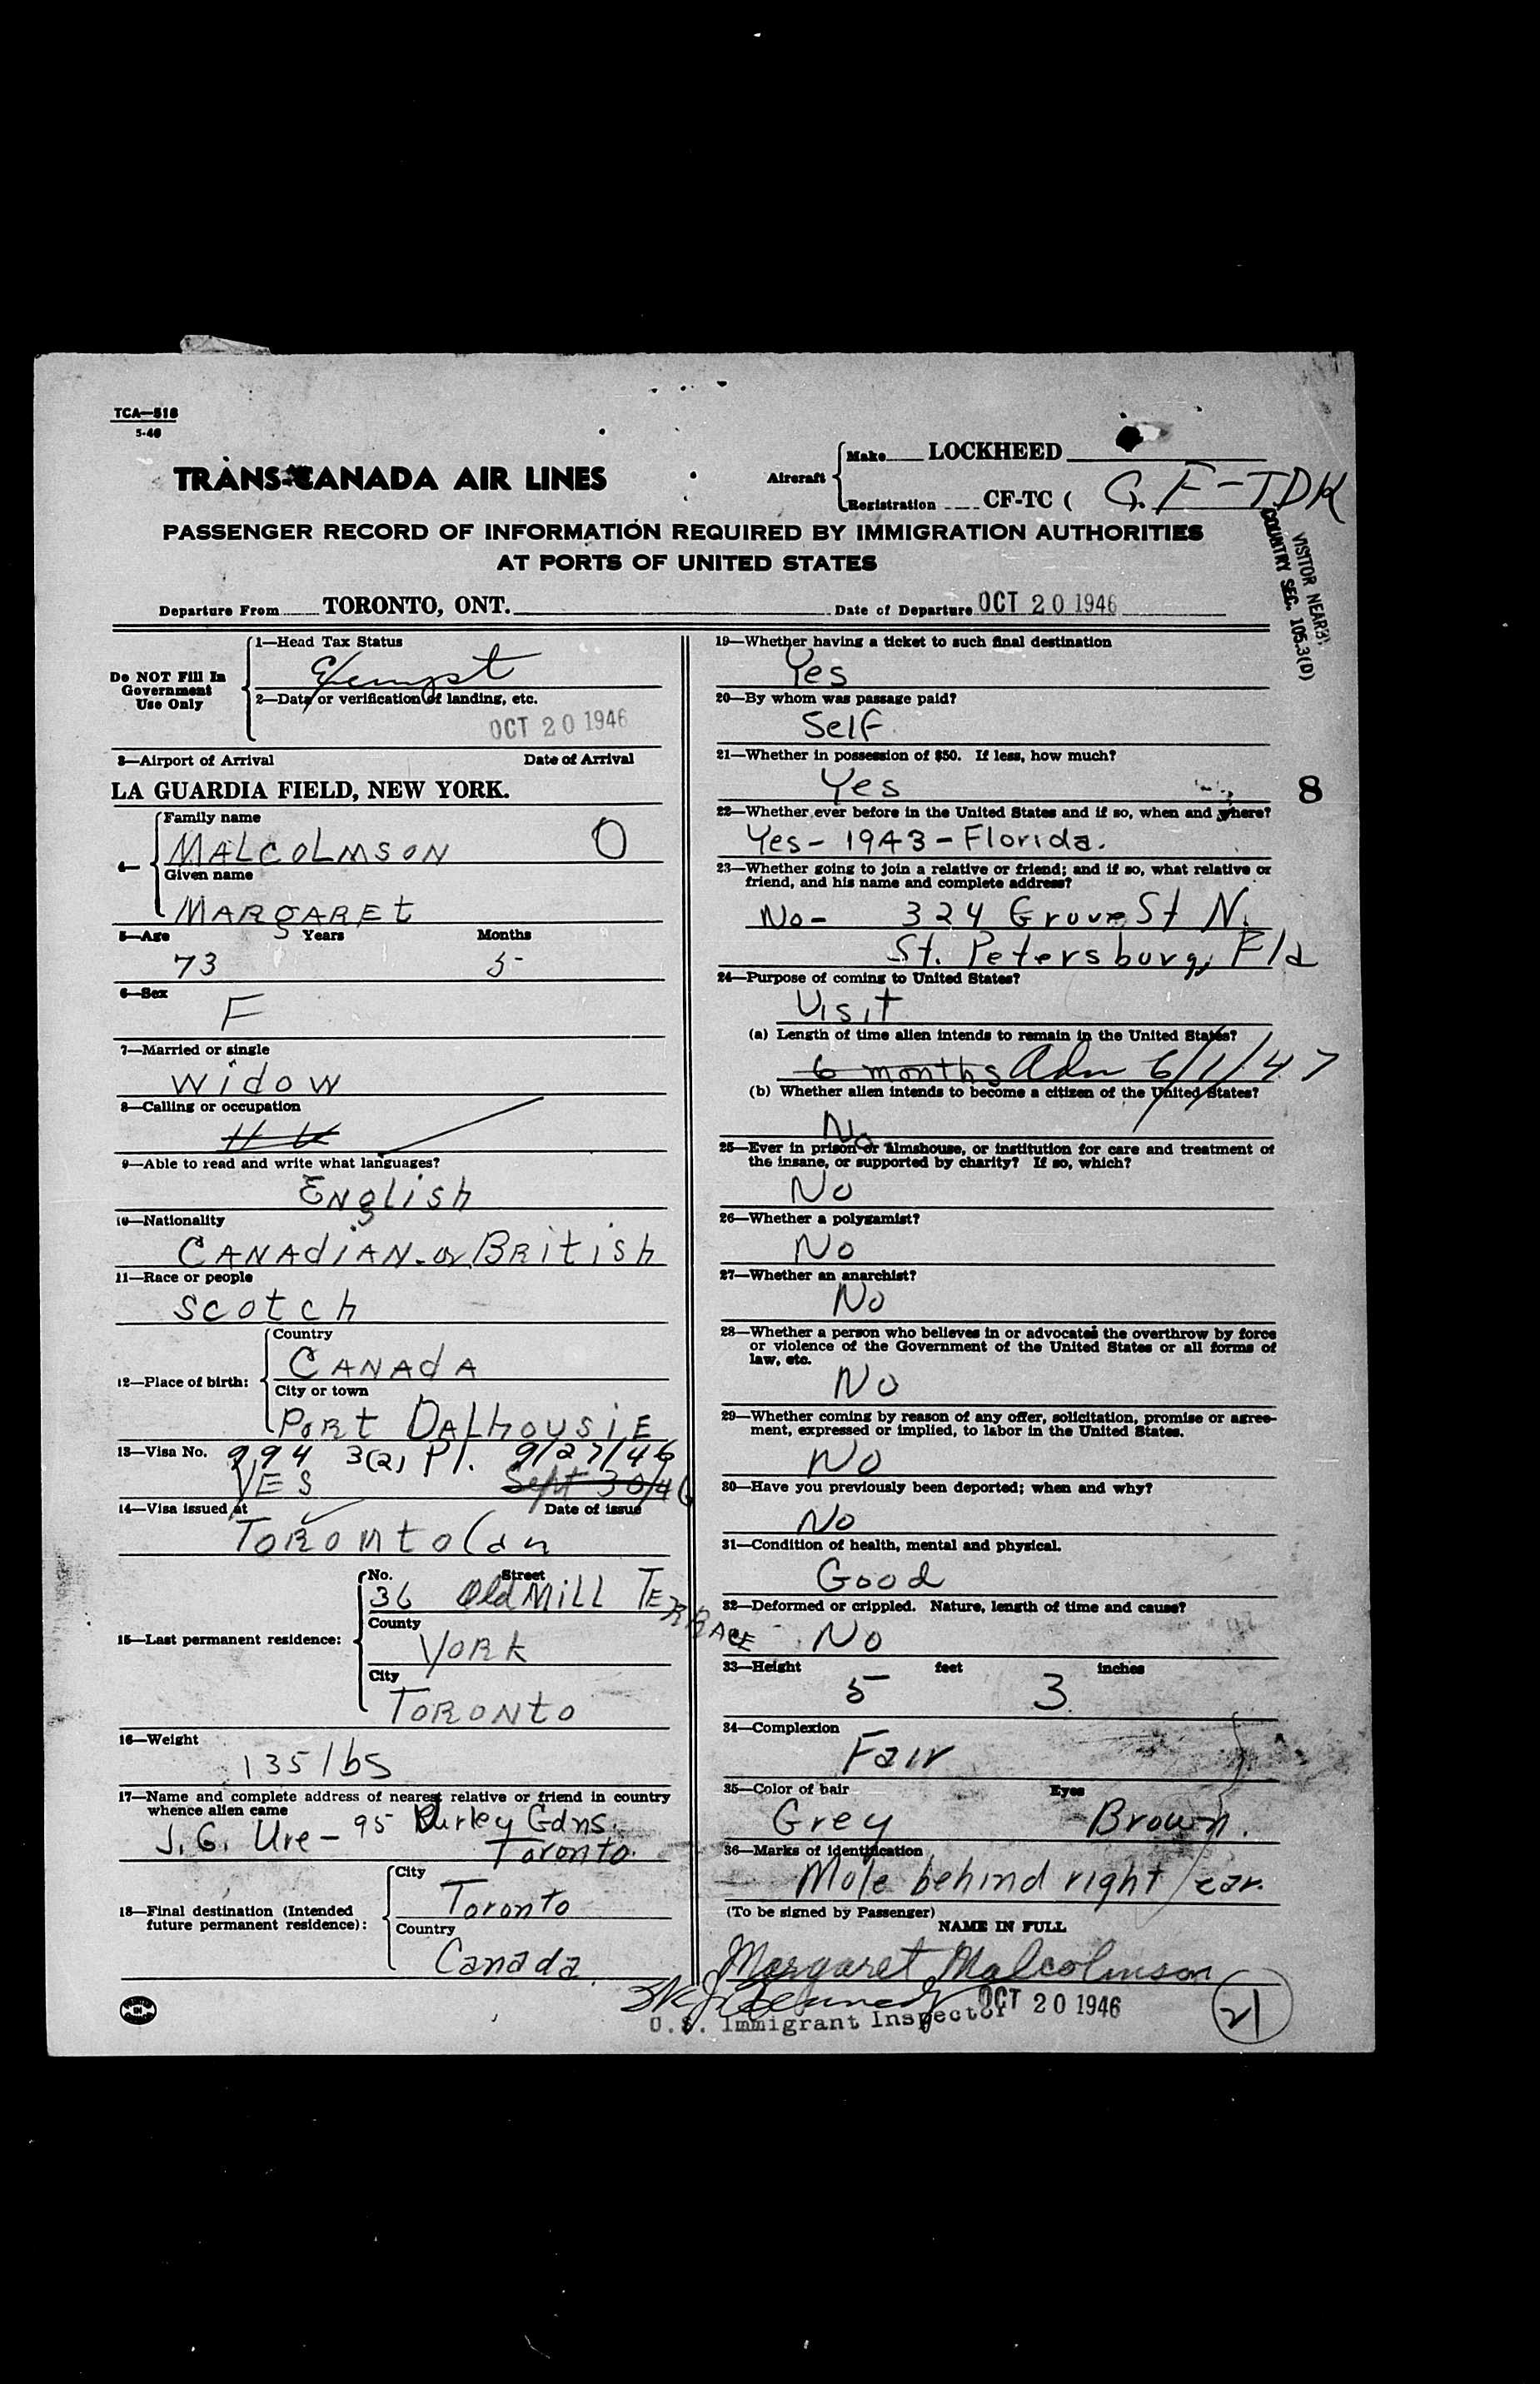 TCA—516
5-46
TRANS-CANADA AIR LINES
Aircraft
Make LOCKHEED
Registration CF-TC ( C.F-TDK
PASSENGER RECORD OF INFORMATION REQUIRED BY IMMIGRATION AUTHORITIES
AT PORTS OF UNITED STATES
VISITOR NEARBY
COUNTRY SEC. 105.3(D)
Departure From TORONTO, ONT. Date of Departure OCT 20 1946
Do NOT Fill In
Government
Use Only
1—Head Tax Status
Exempt
2—Date or verification of landing, etc.
OCT 20 1946
3—Airport of Arrival Date of Arrival
LA GUARDIA FIELD, NEW YORK.
4—
Family name
MALCOLMSON O
Given name
MARGARET
5—Age Years Months
73 5
6—Sex
F
7—Married or single
widow
8—Calling or occupation
9—Able to read and write what languages?
ENglish
10—Nationality
CANAdiAN or BRitish
11—Race or people
scotch
12—Place of birth:
Country
CANAdA
City or town
PORt DALhousiE
13—Visa No. 994 3(2) P1. 9/27/46
YES Sept 30/46
14—Visa issued at Date of issue
TORONto Can
15—Last permanent residence:
No. Street
36 Old MiLL TERRACE
County
YORK
City
TORONto
16—Weight
135 lbs
17—Name and complete address of nearest relative or friend in country
whence alien came
J. G. Ure – 95 Gdns.
Toronto.
18—Final destination (Intended
future permanent residence):
City
Toronto
Country
Canada.
19—Whether having a ticket to such final destination
Yes
20—By whom was passage paid?
Self
21—Whether in possession of $50. If less, how much?
Yes
8
22—Whether ever before in the United States and if so, when and where?
Yes – 1943 – Florida.
23—Whether going to join a relative or friend; and if so, what relative or
friend, and his name and complete address?
No – 324 Grove St N.
St. Petersburg, Fla
24—Purpose of coming to United States?
Visit
(a) Length of time alien intends to remain in the United States?
6 months Adm 6/1/47
(b) Whether alien intends to become a citizen of the United States?
No
25—Ever in prison or almshouse, or institution for care and treatment of
the insane, or supported by charity? If so, which?
No
26—Whether a polygamist?
No
27—Whether an anarchist?
No
28—Whether a person who believes in or advocates the overthrow by force
or violence of the Government of the United States or all forms of
law, etc.
No
29—Whether coming by reason of any offer, solicitation, promise or agree-
ment, expressed or implied, to labor in the United States.
No
30—Have you previously been deported; when and why?
No
31—Condition of health, mental and physical.
Good
32—Deformed or crippled. Nature, length of time and cause?
No
33—Height feet inches
5 3
34—Complexion
Fair
35—Color of hair Eyes
Grey Brown.
36—Marks of identification
Mole behind right ear.
(To be signed by Passenger)
NAME IN FULL
Margaret Malcolmson
OCT 20 1946
U.S. Immigrant Inspector
21